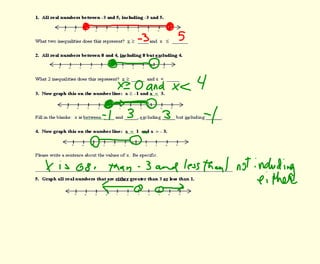 1. All real numbers between -3 and 5, including -3 and 5.
What two inequalities does this represent? x ≥ -3 and x ≤ 5
2. All real numbers between 0 and 4, including 0 but excluding 4.
What 2 inequalities does this represent? x ≥ ____ and x < ____
x ≥ 0 and x < 4
3. Now graph this on the number line: x ≥ -1 and x < 3.
Fill in the blanks: x is between -1 and 3 excluding 3 but including -1
4. Now graph this on the number line: x < 1 and x > -3.
Please write a sentence about the values of x. Be specific.
X is than -3 and less than 1 not including
either
5. Graph all real numbers that are either greater than 3 or less than 1.